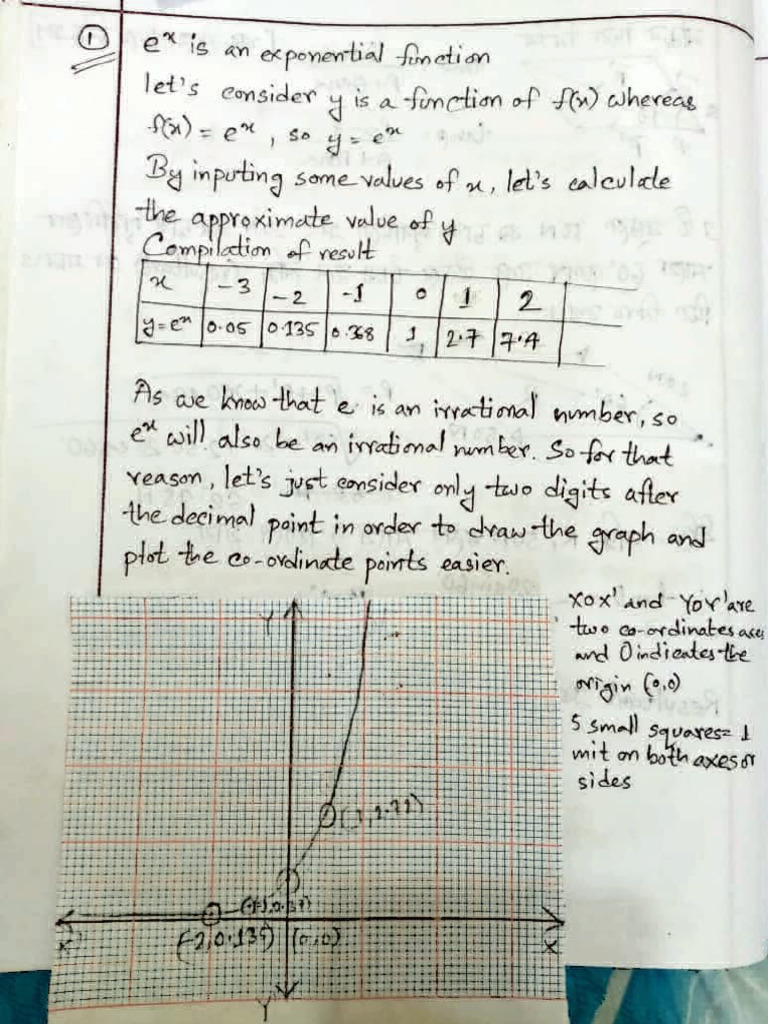 1
e^x is an exponential function
let's consider y is a function of f(x) whereas
f(x) = e^x, so y = e^x
By inputing some values of x, let's calculate
the approximate value of y
Compilation of result
x -3 -2 -1 0 1 2
y=e^x 0.05 0.135 0.368 1 2.7 7.4
As we know that e is an irrational number, so
e^x will also be an irrational number. So for that
reason, let's just consider only two digits after
the decimal point in order to draw the graph and
plot the co-ordinate points easier.
XOX' and YOY' are
two co-ordinates axes
and O indicates the
origin (0,0)
5 small squares = 1
unit on both axes or
sides
Y
(1, 2.72)
(-1, 0.37)
X' (-2, 0.135) (0,0) X
Y'